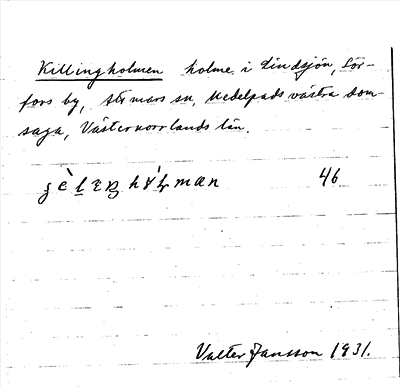 Killingholmen holme i Lindsjön, Sör-
fors by, Attmars sn, Medelpads västra dom-
saga, Västernorrlands län.
46
Valter Jansson 1931.